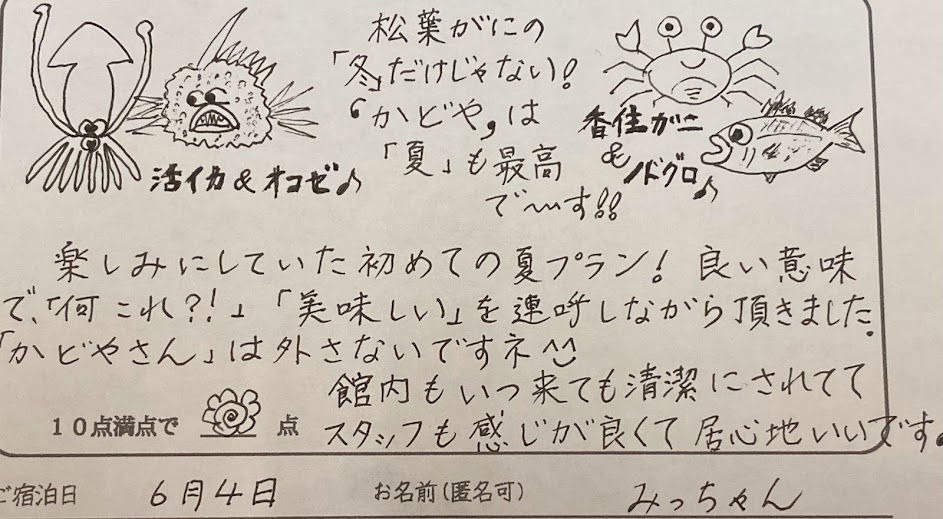 松葉がにの
「冬」だけじゃない!
“かどや”は
「夏」も最高
で〜〜す!!
活イカ&オコゼ♪
香住ガニ
&
ノドグロ♪
楽しみにしていた初めての夏プラン! 良い意味
で、「何これ?!」「美味しい」を連呼しながら頂きました。
「かどやさん」は外さないですネ^^
館内もいつ来ても清潔にされてて
スタッフも感じが良くて居心地いいです。
10点満点で 点
ご宿泊日 6月4日 お名前(匿名可) みっちゃん